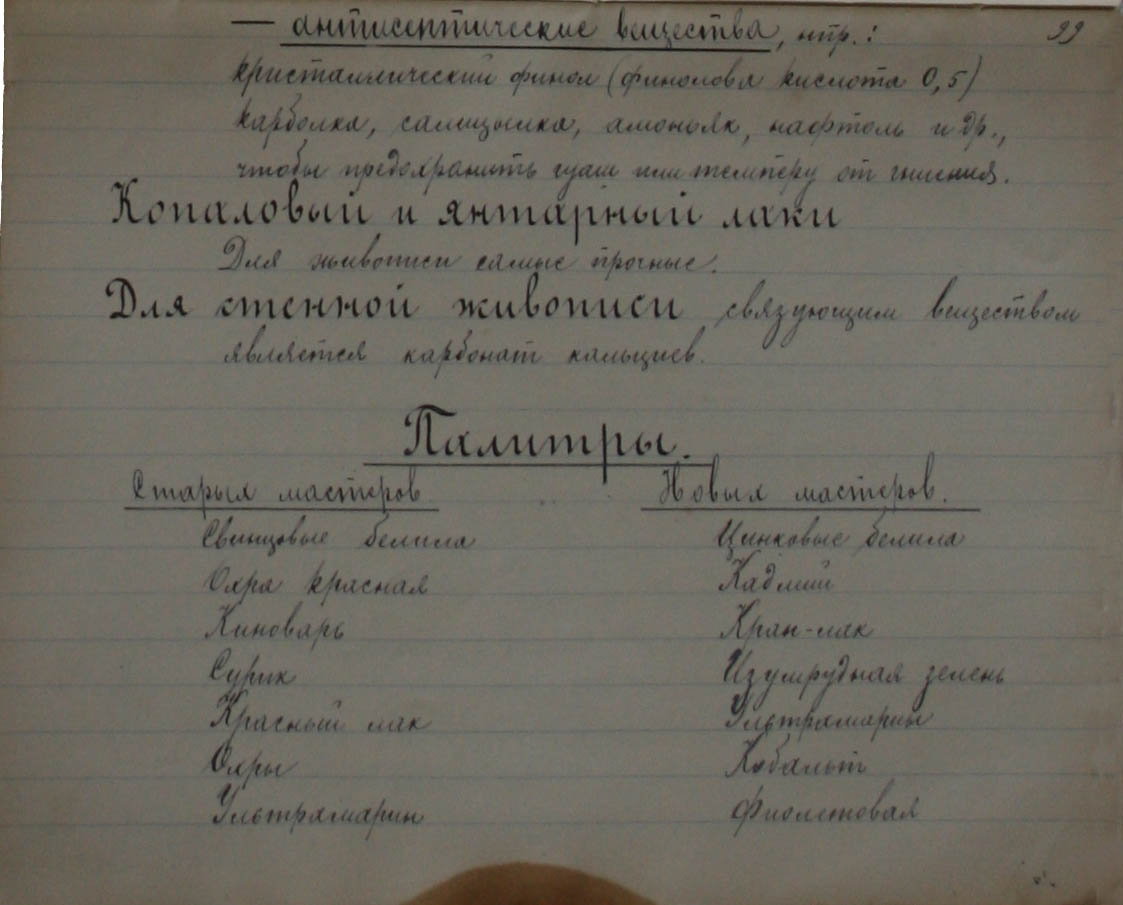 — антисептические вещества, нпр.: 99
кристаллический финол (финолова кислота 0,5)
карболка, салицылка, амоньяк, нафтоль и др.,
чтобы предохранить гуаш или темперу от гниения.
Копаловый и янтарный лаки
Для живописи самые прочные.
Для стенной живописи связующим веществом
является карбонат кальциев.
Палитры.
Старых мастеров Новых мастеров.
Свинцовые белила Цинковые белила
Охра красная Кадмий
Киноварь Крап-лак
Сурик Изумрудная зелень
Красный лак Ультрамарин
Охры Кобальт
Ультрамарин Фиолетовая